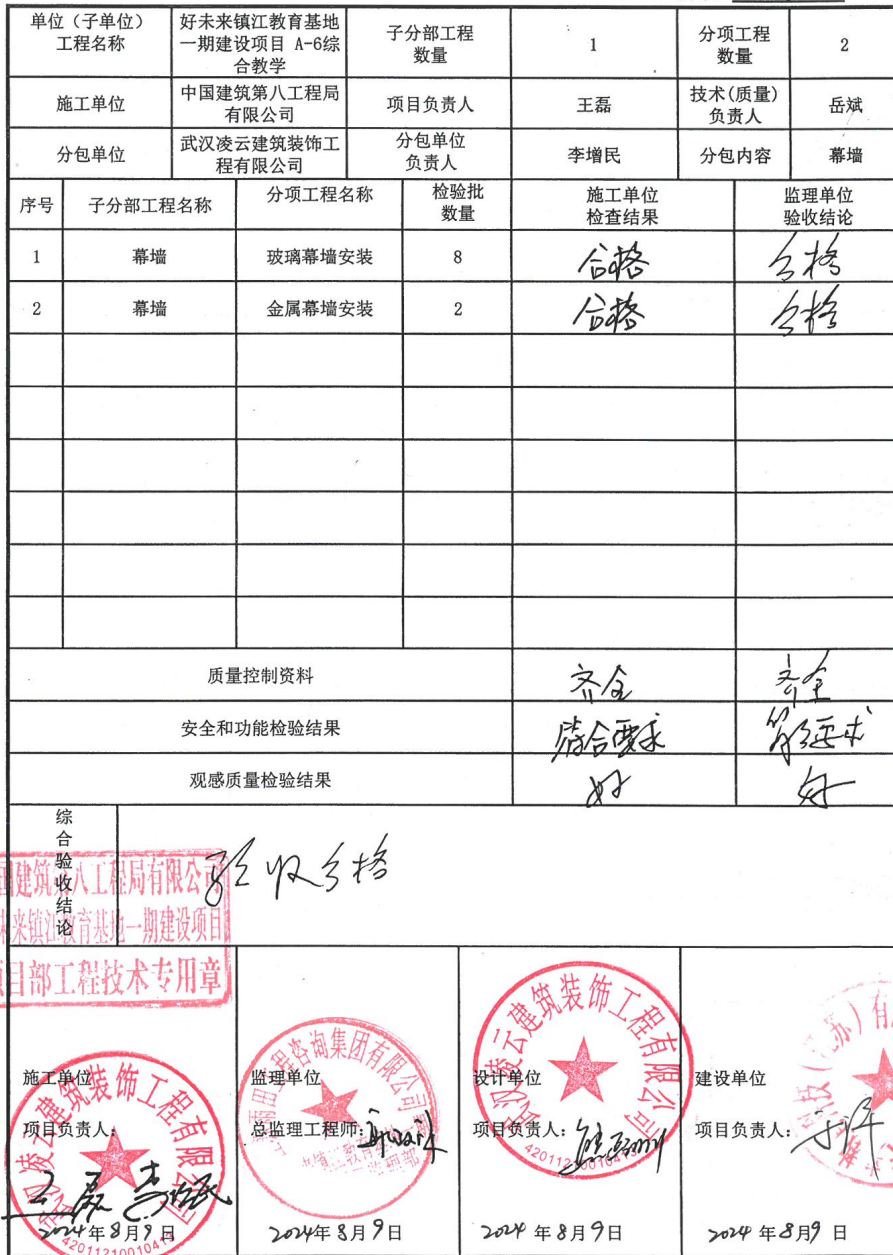 单位（子单位）
工程名称
好未来镇江教育基地
一期建设项目 A-6综
合教学
子分部工程
数量
1
分项工程
数量
2
施工单位
中国建筑第八工程局
有限公司
项目负责人
王磊
技术(质量)
负责人
岳斌
分包单位
武汉凌云建筑装饰工
程有限公司
分包单位
负责人
李增民
分包内容
幕墙
序号
子分部工程名称
分项工程名称
检验批
数量
施工单位
检查结果
监理单位
验收结论
1
幕墙
玻璃幕墙安装
8
合格
合格
2
幕墙
金属幕墙安装
2
合格
合格
质量控制资料
齐全
齐全
安全和功能检验结果
符合要求
符合要求
观感质量检验结果
好
好
综合验收结论
验收合格
国建筑第八工程局有限公司
未来镇江教育基地一期建设项目
项目部工程技术专用章
施工单位
项目负责人：
王磊 李增民
2024年8月9日
武汉凌云建筑装饰工程有限公司
监理单位
总监理工程师：
2024年8月9日
工程咨询集团有限公司
设计单位
项目负责人：
2024年8月9日
武汉凌云建筑装饰工程有限公司
建设单位
项目负责人：
2024年8月9日